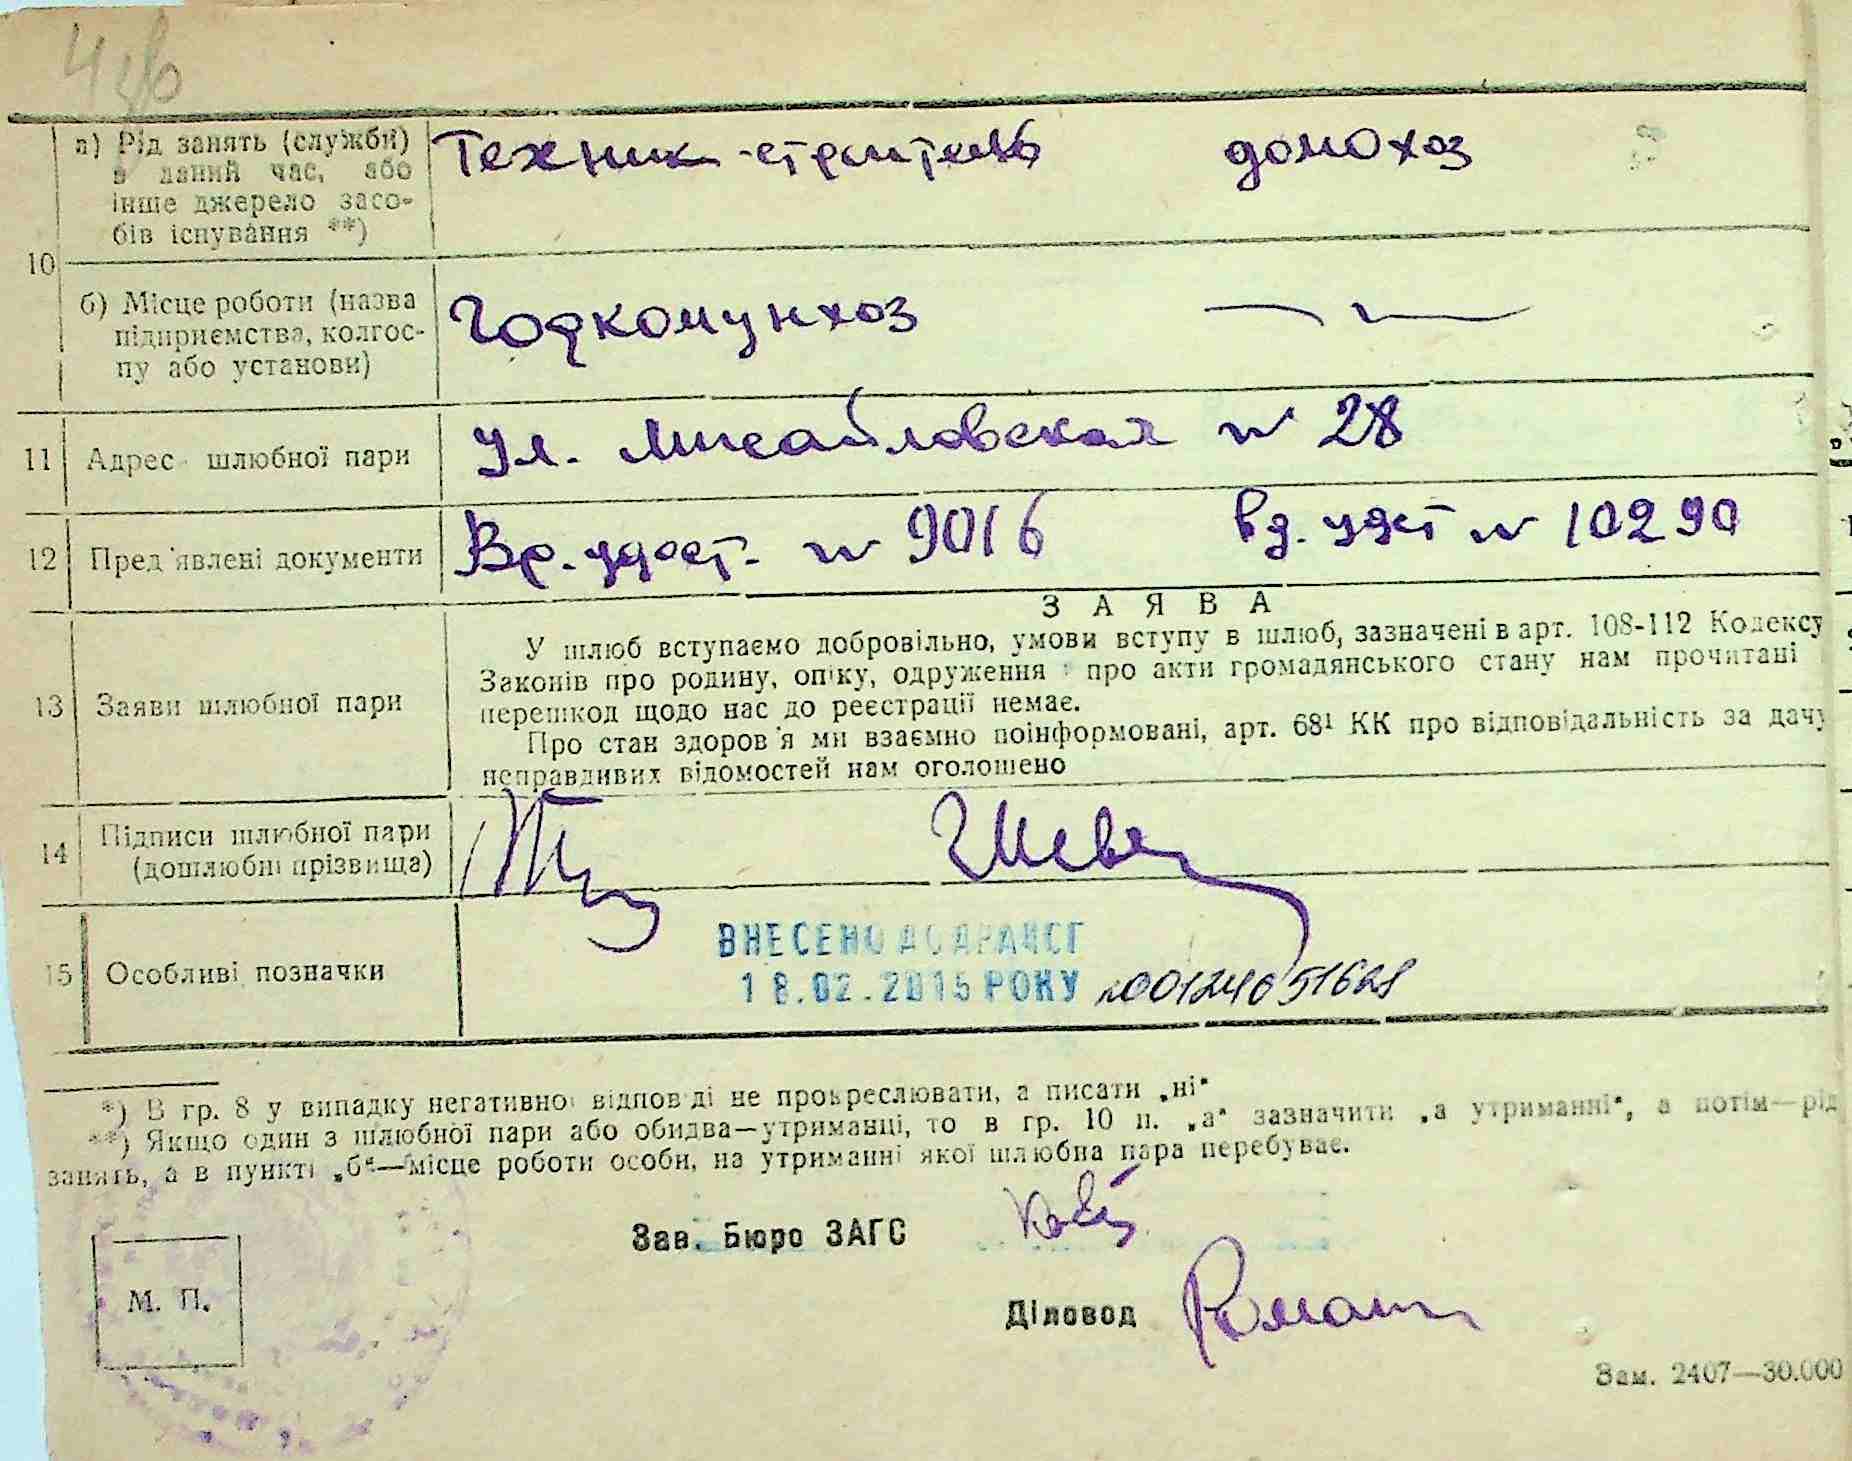 10
а) Рід занять (служби)
в даний час, або
інше джерело засо-
бів існування **)
Техник-строитель домохоз
б) Місце роботи (назва
підприємства, колгос-
пу або установи)
Горкомунхоз —
11 Адрес шлюбної пари
Ул. Михайловская № 28
12 Пред'явлені документи
Вр. удост. № 9016 Вр. удст № 10290
ЗАЯВА
13 Заяви шлюбної пари
У шлюб вступаємо добровільно, умови вступу в шлюб, зазначені в арт. 108-112 Кодексу
Законів про родину, опіку, одруження і про акти громадянського стану нам прочитані
перешкод щодо нас до реєстрації немає.
Про стан здоров'я ми взаємно поінформовані, арт. 68¹ КК про відповідальність за дачу
неправдивих відомостей нам оголошено
14 Підписи шлюбної пари
(дошлюбні прізвища)
15 Особливі позначки
ВНЕСЕНО ДО ДРАЦСГ
18.02.2015 РОКУ
*) В гр. 8 у випадку негативної відповіді не прокреслювати, а писати „ні“
**) Якщо один з шлюбної пари або обидва—утриманці, то в гр. 10 п. „а“ зазначити „а утриманні“, а потім—рід
занять, а в пункті „б“—місце роботи особи, на утриманні якої шлюбна пара перебуває.
Зав. Бюро ЗАГС
М. П.
Діловод
Зам. 2407—30.000